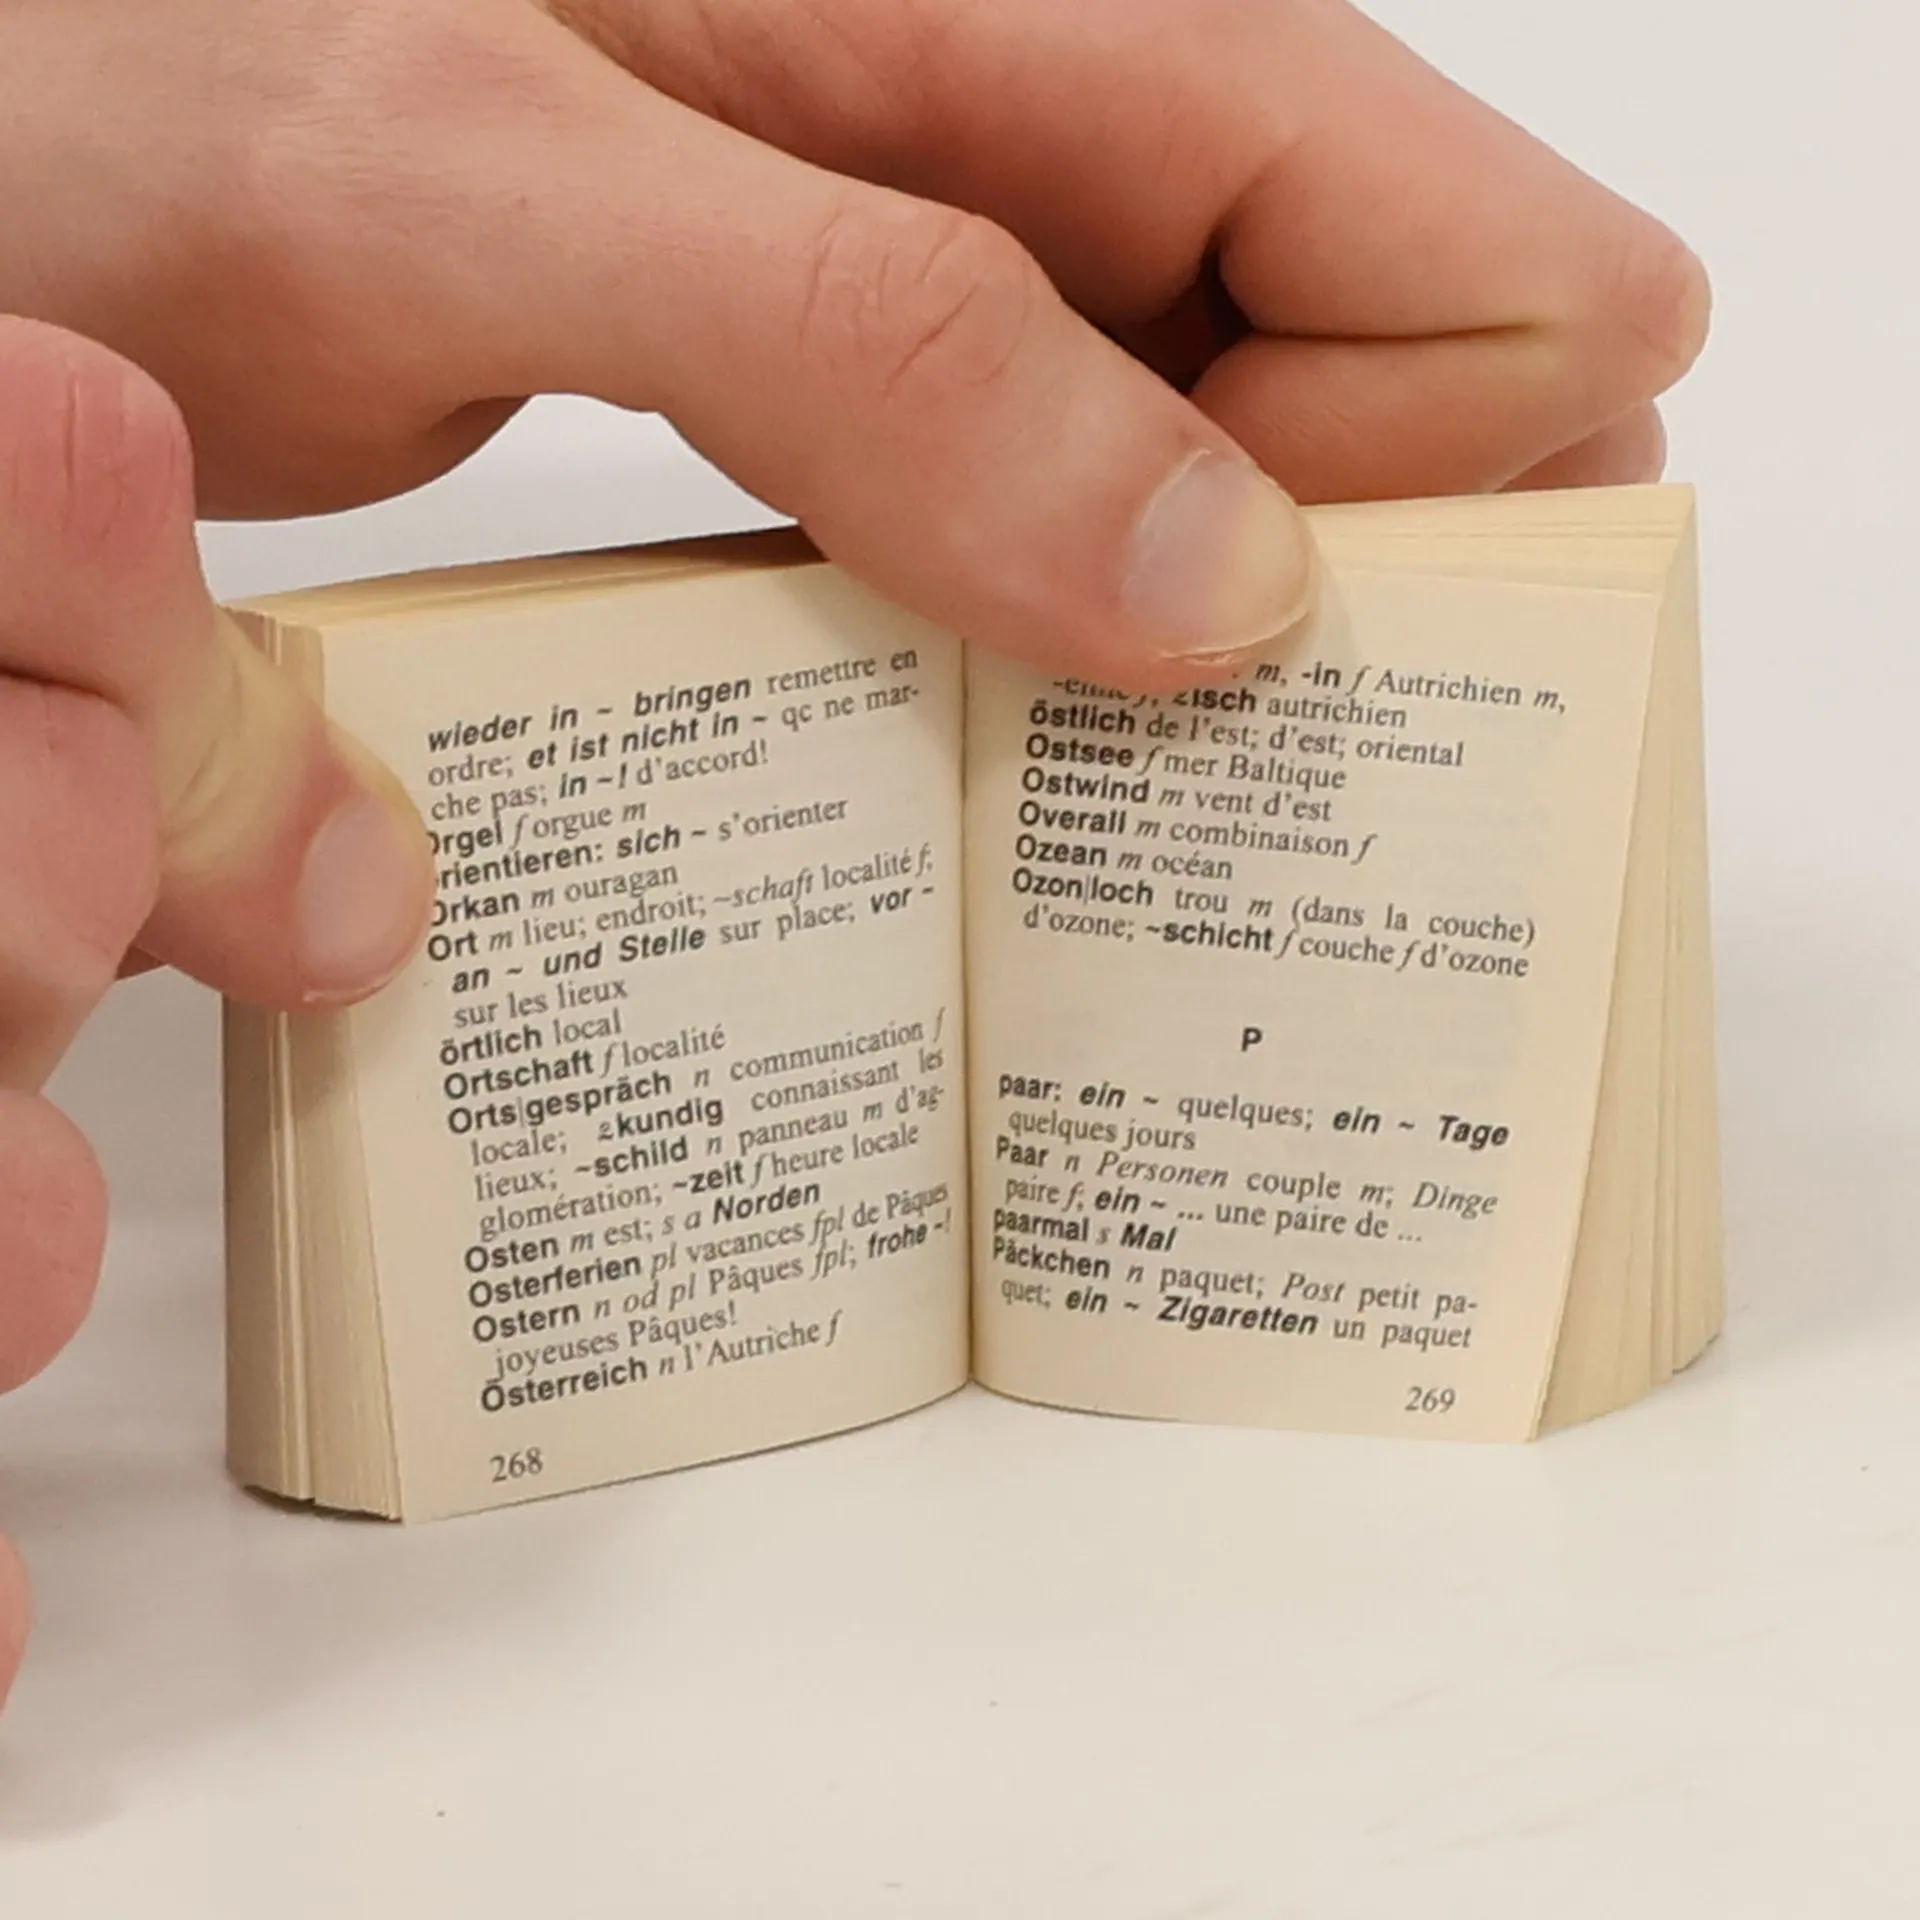 wieder in ~ bringen remettre en
ordre; et ist nicht in ~ qc ne mar-
che pas; in ~! d'accord!
Orgel f orgue m
orientieren: sich ~ s'orienter
Orkan m ouragan
Ort m lieu; endroit; ~schaft localité f;
an ~ und Stelle sur place; vor ~
sur les lieux
örtlich local
Ortschaft f localité
Orts|gespräch n communication f
locale; ⁓kundig connaissant les
lieux; ~schild n panneau m d'ag-
glomération; ~zeit f heure locale
Osten m est; s a Norden
Osterferien pl vacances fpl de Pâques
Ostern n od pl Pâques fpl; frohe ~!
joyeuses Pâques!
Österreich n l'Autriche f
268
m, -in f Autrichien m,
-enne f; ⁓isch autrichien
östlich de l'est; d'est; oriental
Ostsee f mer Baltique
Ostwind m vent d'est
Overall m combinaison f
Ozean m océan
Ozon|loch trou m (dans la couche)
d'ozone; ~schicht f couche f d'ozone
P
paar: ein ~ quelques; ein ~ Tage
quelques jours
Paar n Personen couple m; Dinge
paire f; ein ~ ... une paire de ...
paarmal s Mal
Päckchen n paquet; Post petit pa-
quet; ein ~ Zigaretten un paquet
269